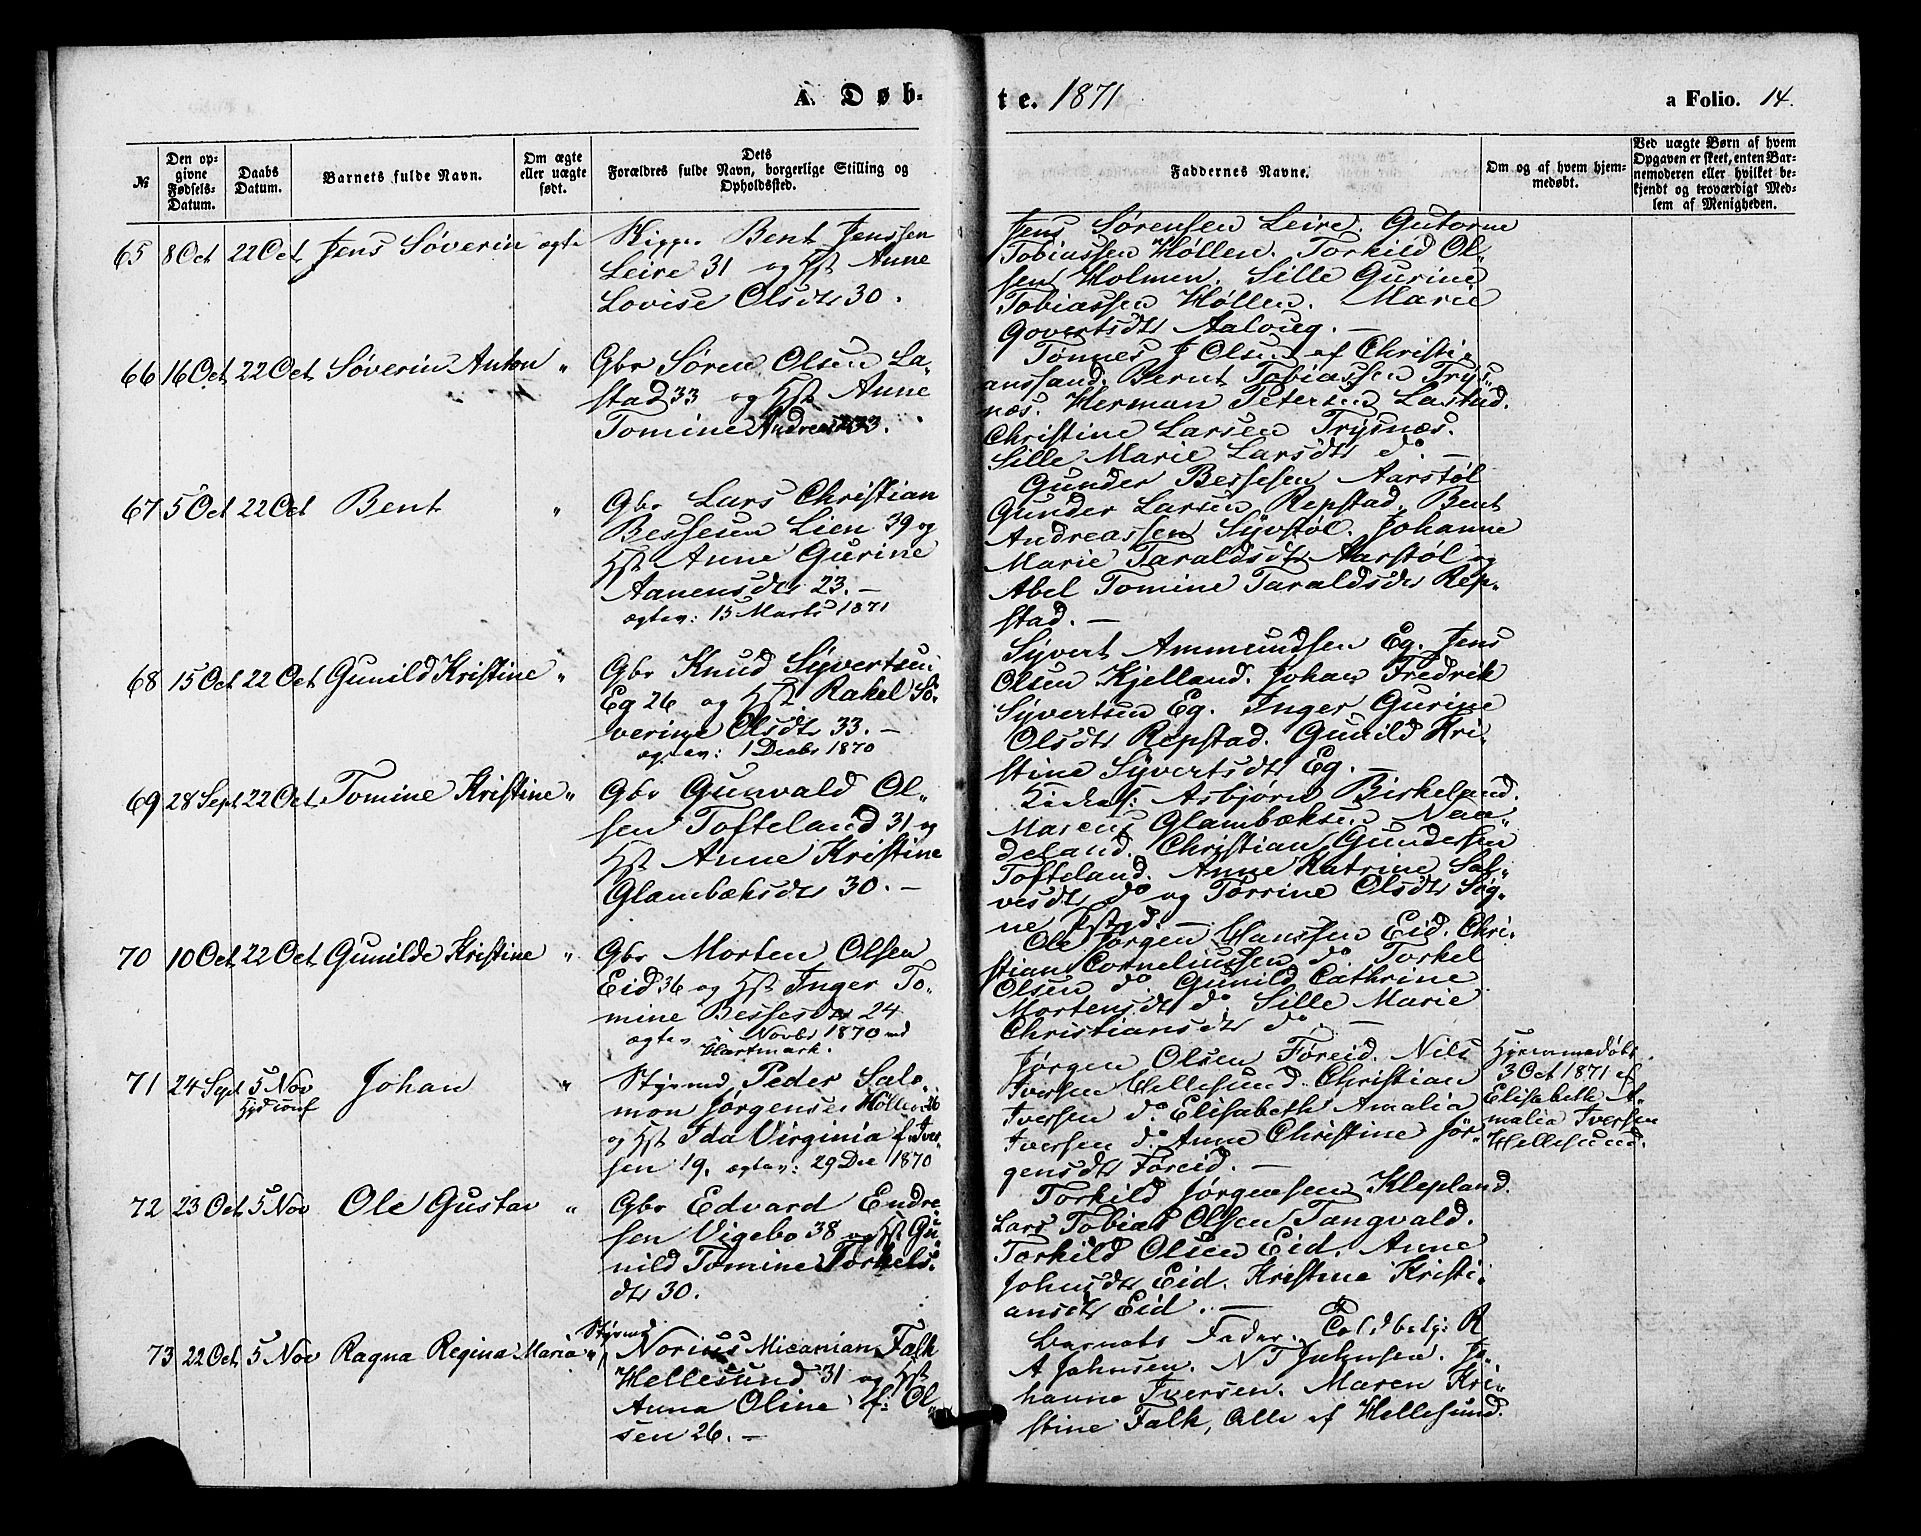 A. Døb-
te. 1871
a Folio. 14.
№
Den op-
givne
Fødsels-
Datum.
Daabs
Datum.
Barnets fulde Navn.
Om ægte
eller uægte
født.
Dets
Forældres fulde Navn, borgerlige Stilling og
Opholdssted.
Faddernes Navne.
Om og af hvem hjem-
medøbt.
Ved uægte Børn af hvem
Opgaven er skeet, enten Bar-
nemoderen eller hvilket be-
kjendt og troværdigt Med-
lem af Menigheden.
65 8 Oct 22 Oct Jens Söverin ægte
Bent Jenssen
Leire 31 og Hst Anne
Lovise Olsdtr 30.
Jens Sørensen Leire. Gutorne
Tobiassen Høllen. Torkild Ol-
sen Holmen. Sille Gurine
Tobiassen Høllen. Marie
Govertsdtr Aaloug. —
66 16 Oct 22 Oct Söverin Anton "
Gbr Sören Olsen La-
stad 33 og Hst Anne
Tomine Andreasdtr 33.
Tønnes J Olsen af Christi-
anssand. Bernt Tobiassen Trys-
næs. Herman Petersen Lastad.
Christine Larsen Trysnæs.
Sille Marie Larsdtr do. —
67 5 Oct 22 Oct Bent "
Gbr Lars Christian
Bessesen Lien 39 og
Hst Anne Gurine
Aanensdtr 23. —
ægtev: 15 Marts 1871
Gunder Bessesen Aarstøl
Gunder Larsen Repstad. Bent
Andreassen Syvstøl. Johanne
Marie Taraldsdtr Aarstøl og
Abel Tomine Taraldsdtr Rep-
stad. —
68 15 Oct 22 Oct Gunild Kristine "
Gbr Knud Syvertsen
Eg 26 og Hst Rakel Sö-
verine Olsdtr 33. —
ægtev: 1 Decbr 1870
Syvert Ammundsen Eg. Jens
Olsen Kjelland. Johan Fredrik
Syvertsen Eg. Inger Gurine
Olsdtr Repstad. Gunild Kri-
stine Syvertsdtr Eg. —
69 28 Sept 22 Oct Tomine Kristine "
Gbr Gunvald Ol-
sen Tofteland 31 og
Hst Anne Kristine
Glambæksdtr 30. —
Kirkes: Asbjörn Birkeland.
Marcus Glambæksen Naa-
deland. Christian Gundersen
Tofteland. Anne Katrine Sal-
vesdtr do og Torrine Olsdtr Søg-
ne Pstgd. —
70 10 Oct 22 Oct Gunilde Kristine "
Gbr Morten Olsen
Eid 36 og Hst Inger To-
mine Bessesdtr 24
ægtev i Novbr 1870 ved
Hartmark.
Ole Jørgen Hanssen Eid. Chri-
stian Corneliussen do. Torkel
Olsen do. Gunild Cathrine
Mortensdtr do. Sille Marie
Christiansdtr do —
71 24 Sept 5 Nov Johan "
Styrmd Peder Salo-
mon Jørgensen Høllen 26
og Hst Ida Virginia f. Iver-
sen 19. ægtev: 29 Dec 1870
Jørgen Olsen Føreid. Nils
Iversen Hellesund. Christian
Iversen do. Elisabeth Amalia
Iversen do. Anne Christine Jør-
gensdtr Føreid. —
Hjemmedøbt
3 Oct 1871 af
Elisabeth A-
malia Iversen
Hellesund.
72 23 Oct 5 Nov Ole Gustav "
Gbr Edvard Endre-
sen Vigebo 38 og Hst Gu-
nild Tomine Torkels-
dtr 30.
Torkild Jørgensen Klepland.
Lars Tobias Olsen Tangvald.
Torkild Olsen Eid. Anne
Johnsdtr Eid. Kristine Kristi-
ansdtr Eid. —
73 22 Oct 5 Nov Ragna Regina Maria "
Styrmd
Norius Micanian Falk
Hellesund 31 og Hst
Anna Oline f: Ol-
sen 26. —
Barnets Fader. Toldbetj: R
A Johnsen. N T Johnsen. Jo-
hanne Iversen. Maren Kri-
stine Falk, Alle af Hellesund.